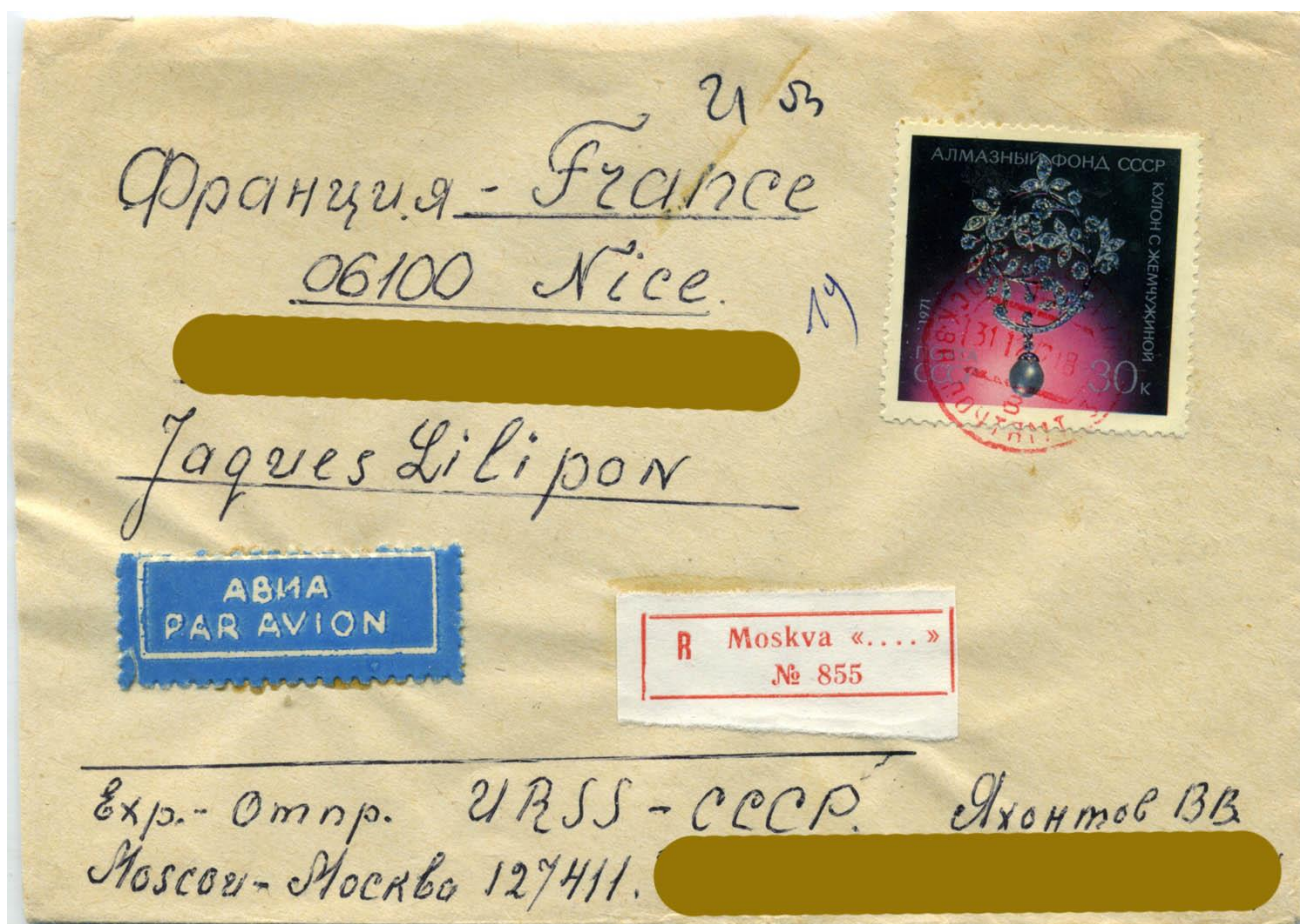 Франция - France
06100 Nice.
19
Jaques Lilipon
АЛМАЗНЫЙ ФОНД СССР
КУЛОН С ЖЕМЧУЖИНОЙ
1971
ПОЧТА
СССР
30 к
МОСКВА
АВИА
PAR AVION
R Moskva «....»
№ 855
Exp.- Отпр. URSS - СССР. Яхонтов В.В.
Moscou - Москва 127411.